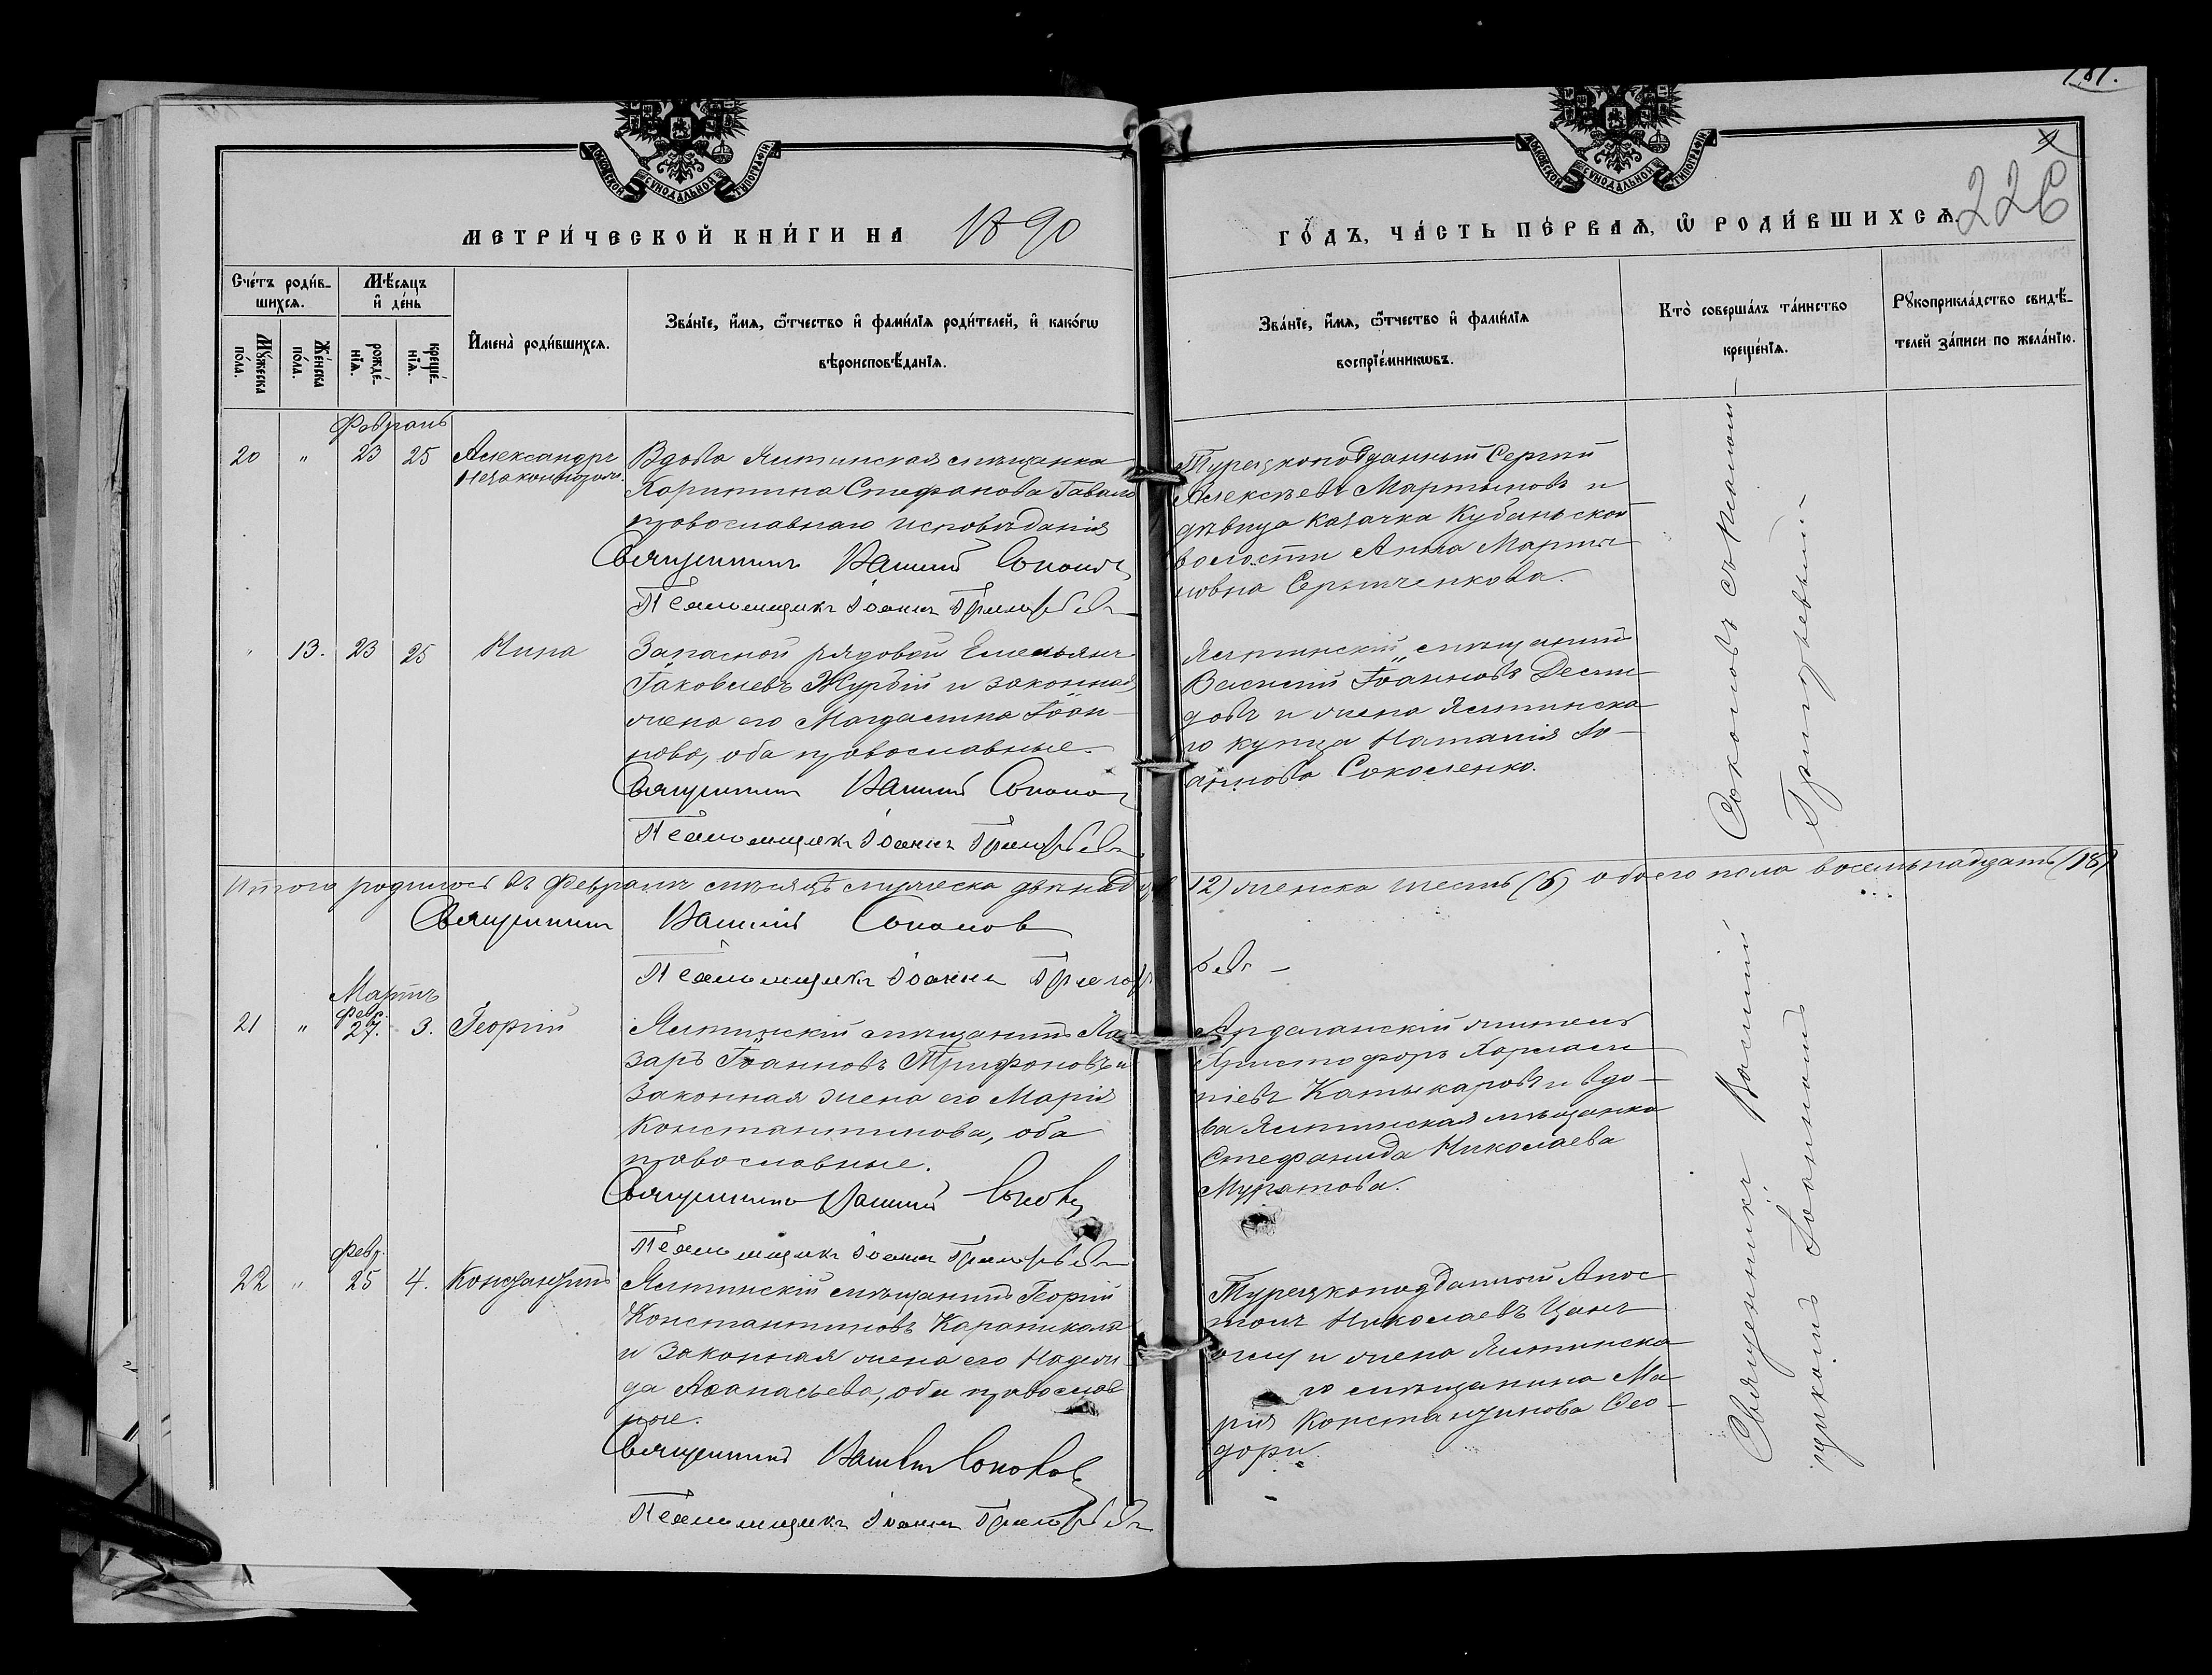 181.
226
МОСКОВСКОЙ СѴНОДАЛЬНОЙ ТИПОГРАФІИ
МОСКОВСКОЙ СѴНОДАЛЬНОЙ ТИПОГРАФІИ
МЕТРИ́ЧЕСКОЙ КНИ́ГИ НА 1890
ГО́ДЪ, ЧА́СТЬ ПЕ́РВАѦ, Ѿ РОДИ́ВШИХСѦ.
Сче́тъ роди́в-
шихсѧ.
Мꙋ́жеска
по́ла.
Же́нска
по́ла.
Мѣ́сѧцъ
и҆ де́нь
рожде́-
нїѧ.
креще́-
нїѧ.
И҆мена̀ роди́вшихсѧ.
Зва́нїе, и҆́мѧ, ѻ҆́тчество и҆ фами́лїѧ роди́телей, и҆ како́гѡ
вѣроисповѣ́данїѧ.
Зва́нїе, и҆́мѧ, ѻ҆́тчество и҆ фами́лїѧ
воспрїе́мникѡвъ.
Кто̀ соверша́лъ та́инство
креще́нїѧ.
Рꙋкоприкла́дство свидѣ́-
телей за́писи по жела́нїю.
Февраль
20 " 23 25 Александръ
незаконнорож.
Вдова Ялтинская мѣщанка
Харитина Стефанова
православнаго исповѣданія
Священникъ Василій Соколовъ
Псаломщикъ Іоаннъ Григорьевъ
Турецкоподданный Сергій
Алексѣевъ Мартыновъ и
дѣвица казачка Кубанской
волости Анна Марты-
новна
" 13. 23 25 Нина
Запасной рядовой Емельянъ
Іаковлевъ Журбій и законная
жена его Магдалина Іоан-
нова, оба православные.
Священникъ Василій Соколовъ
Псаломщикъ Іоаннъ Григорьевъ
Ялтинскій мѣщанинъ
Василій Іоанновъ Деми-
довъ и жена Ялтинска-
го купца Наталія Іо-
аннова Соколенко.
Итого родилось въ Февралѣ мѣсяцѣ мужеска двѣнадц (12) женска шесть (6) обоего пола восемьнадцать (18)
Священникъ Василій Соколов
Псаломщикъ Іоаннъ Григорьевъ
Мартъ
Февр.
21 " 27. 3. Георгій
Ялтинскій мѣщанинъ Ла-
заръ Іоанновъ Трифоновъ и
законная жена его Марія
Константинова, оба
православные.
Священникъ Василій Соколовъ
Псаломщикъ Іоаннъ Григорьевъ
Ардаганскій житель
Христофоръ Харлам-
піевъ Катыкаровъ и вдо-
ва Ялтинская мѣщанка
Стефанида Николаева
Муратова.
Февр.
22 " 25 4. Константинъ
Ялтинскій мѣщанинъ Георгій
Константиновъ Караникола
и законная жена его Надеж-
да Аѳанасьева, оба православ
ные.
Священникъ Василій Соколовъ
Псаломщикъ Іоаннъ Григорьевъ
Турецкоподданный Апос
толъ Николаевъ
и жена Ялтинска-
го мѣщанина Ма-
рія Константинова Ѳео-
дори.
Священникъ Василій Соколовъ съ псалом-
щикомъ Іоанномъ Григорьевымъ